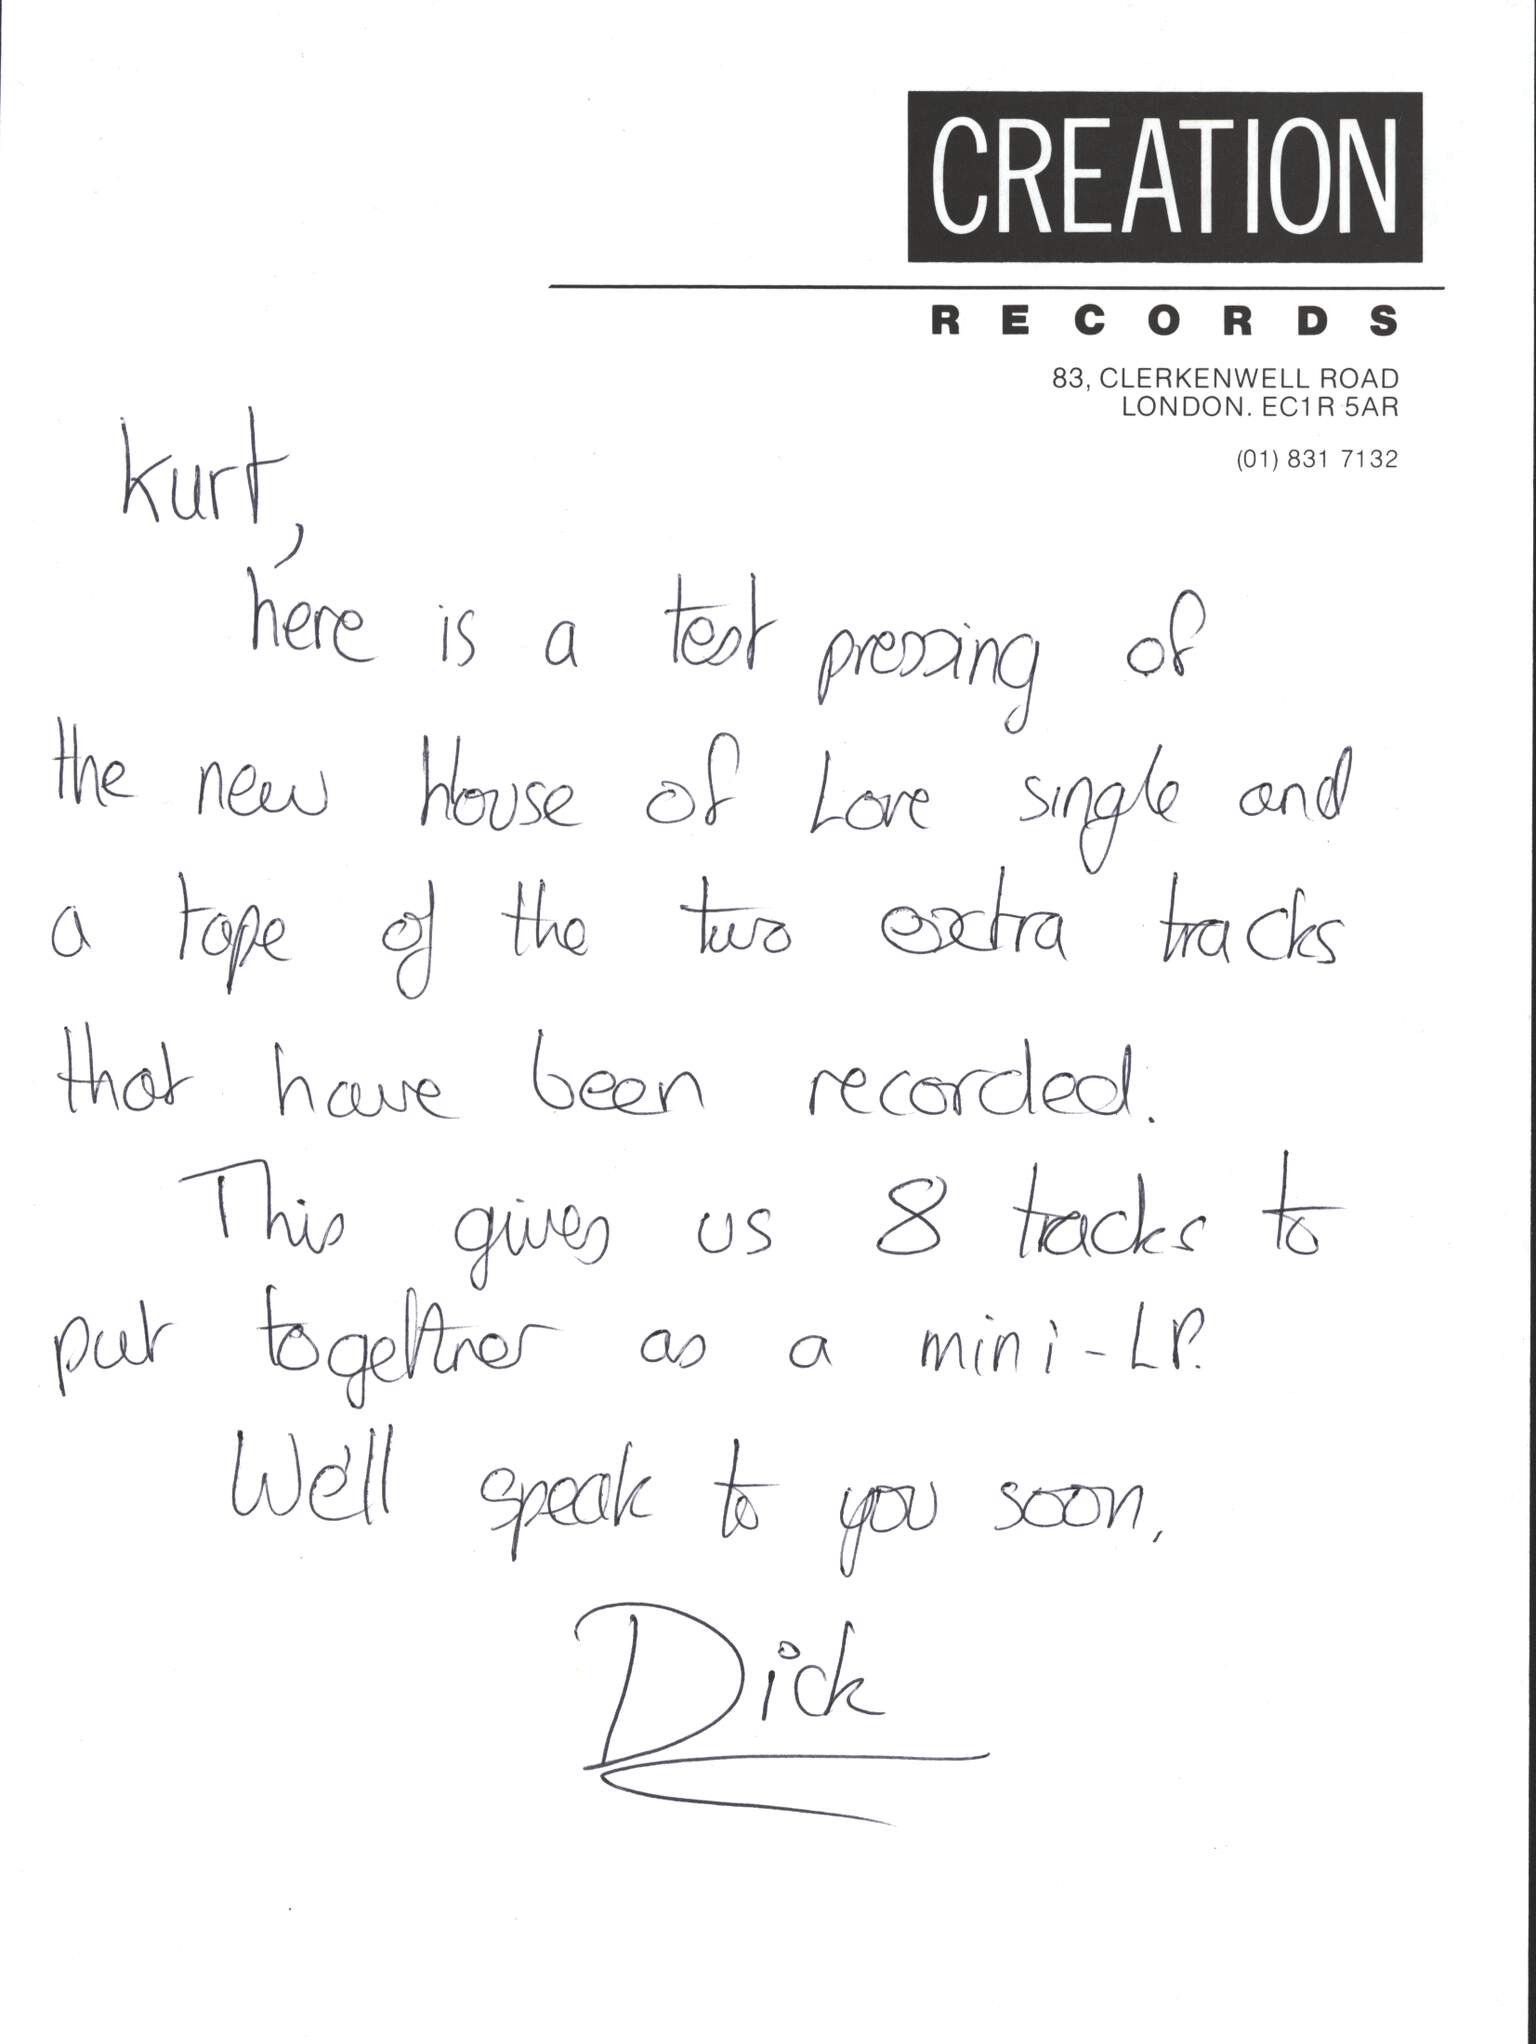 CREATION
RECORDS
83, CLERKENWELL ROAD
LONDON. EC1R 5AR
(01) 831 7132
Kurt,
here is a test pressing of
the new House of Love single and
a tape of the two extra tracks
that have been recorded.
This gives us 8 tracks to
put together as a mini-LP.
We'll speak to you soon,
Dick